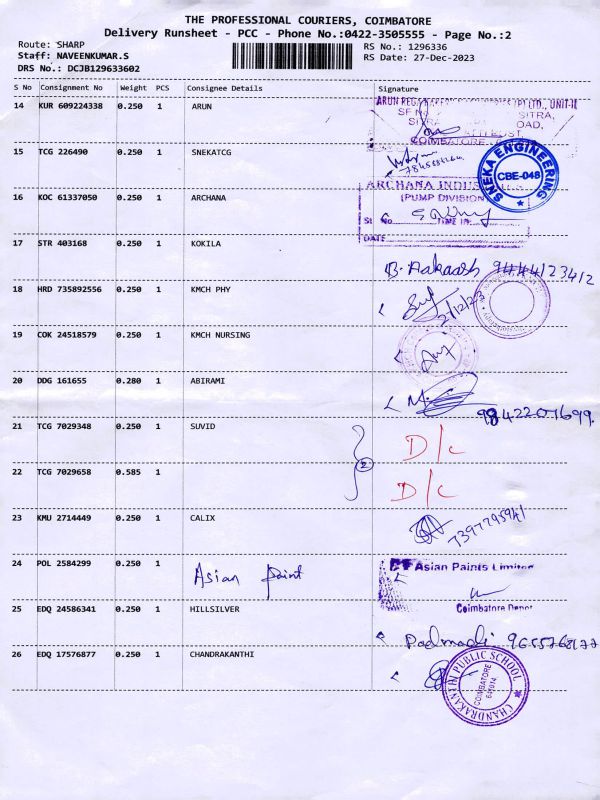 THE PROFESSIONAL COURIERS, COIMBATORE
Delivery Runsheet - PCC - Phone No.:0422-3505555 - Page No.:2
Route: SHARP
RS No.: 1296336
Staff: NAVEENKUMAR.S
RS Date: 27-Dec-2023
DRS No.: DCJB129633602
S No Consignment No Weight PCS Consignee Details Signature
14 KUR 609224338 0.250 1 ARUN
UNIT-II
SITRA,
COIMBATORE
15 TCG 226490 0.250 1 SNEKATCG
SNEKA ENGINEERING
CBE-048
16 KOC 61337050 0.250 1 ARCHANA
ARCHANA
(PUMP DIVISION)
DATE
17 STR 403168 0.250 1 KOKILA
B. Aakaash 9444123412
18 HRD 735892556 0.250 1 KMCH PHY
19 COK 24518579 0.250 1 KMCH NURSING
20 DDG 161655 0.280 1 ABIRAMI
9842201699.
21 TCG 7029348 0.250 1 SUVID
D/c
2
22 TCG 7029658 0.585 1
D/c
23 KMU 2714449 0.250 1 CALIX
7397795941
24 POL 2584299 0.250 1 Asian paint
Asian Paints Limited
Coimbatore Depot
25 EDQ 24586341 0.250 1 HILLSILVER
9655768177
26 EDQ 17576877 0.250 1 CHANDRAKANTHI
CHANDRAKANTHI PUBLIC SCHOOL
COIMBATORE
641014